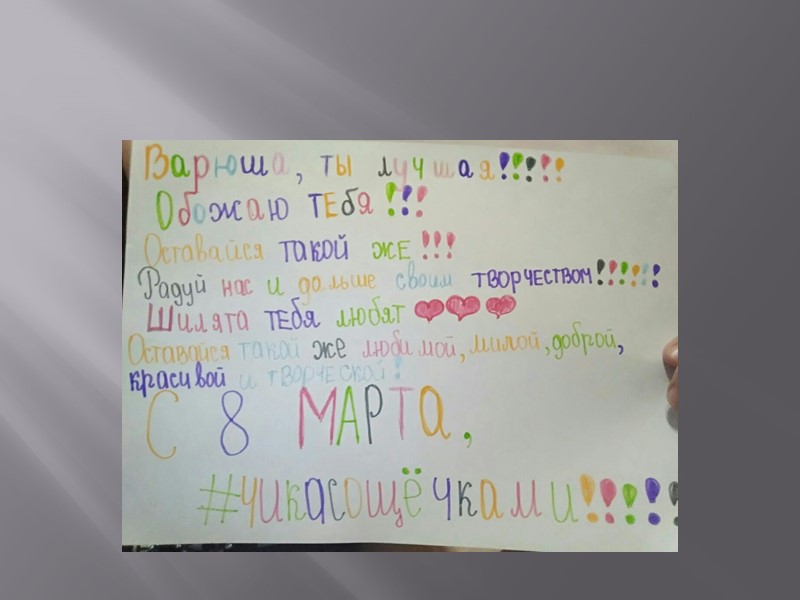 Варюша, ты лучшая!!!!!
Обожаю тебя!!!
Оставайся такой же!!!
Радуй нас и дальше своим творчеством!!!!!!
Шилята тебя любят ❤❤❤
Оставайся такой же любимой, милой, доброй,
красивой и творческой!
С 8 МАРТА,
#чикасощёчками!!!!!